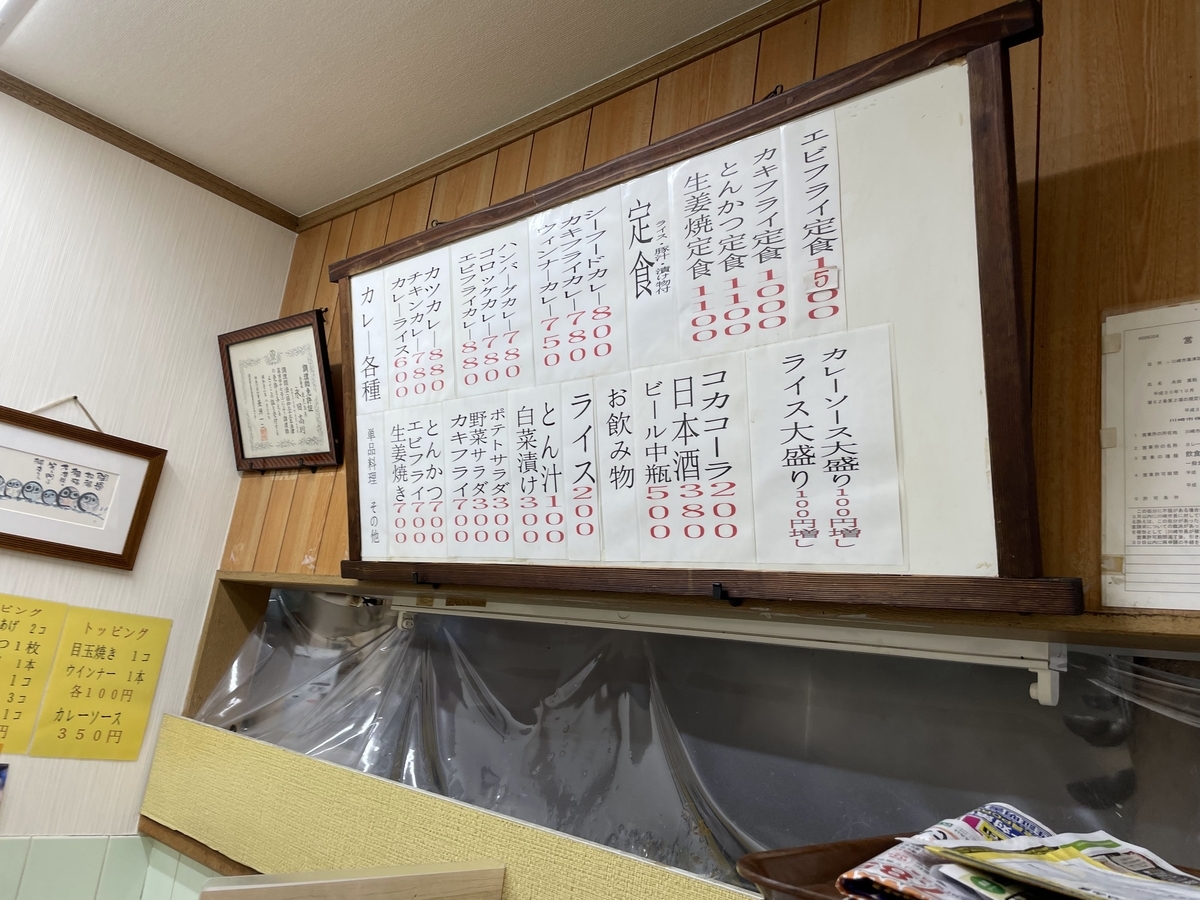 カレー各種
カレーライス600
チキンカレー780
カツカレー880
エビフライカレー880
コロッケカレー780
ハンバーグカレー780
ウィンナーカレー750
カキフライカレー780
シーフードカレー800
定食
ライス・豚汁・漬け物付
生姜焼定食1100
とんかつ定食1100
カキフライ定食1000
エビフライ定食1500
単品料理 その他
生姜焼き700
エビフライ700
とんかつ700
カキフライ700
野菜サラダ300
ポテトサラダ300
白菜漬け300
とん汁100
ライス200
お飲み物
ビール中瓶500
日本酒380
コカコーラ200
ライス大盛り100円増し
カレーソース大盛り100円増し
調理師免許証
ピング
あげ 2コ
つ1枚
1本
1コ
3コ
1コ
円
トッピング
目玉焼き 1コ
ウインナー 1本
各100円
カレーソース
350円